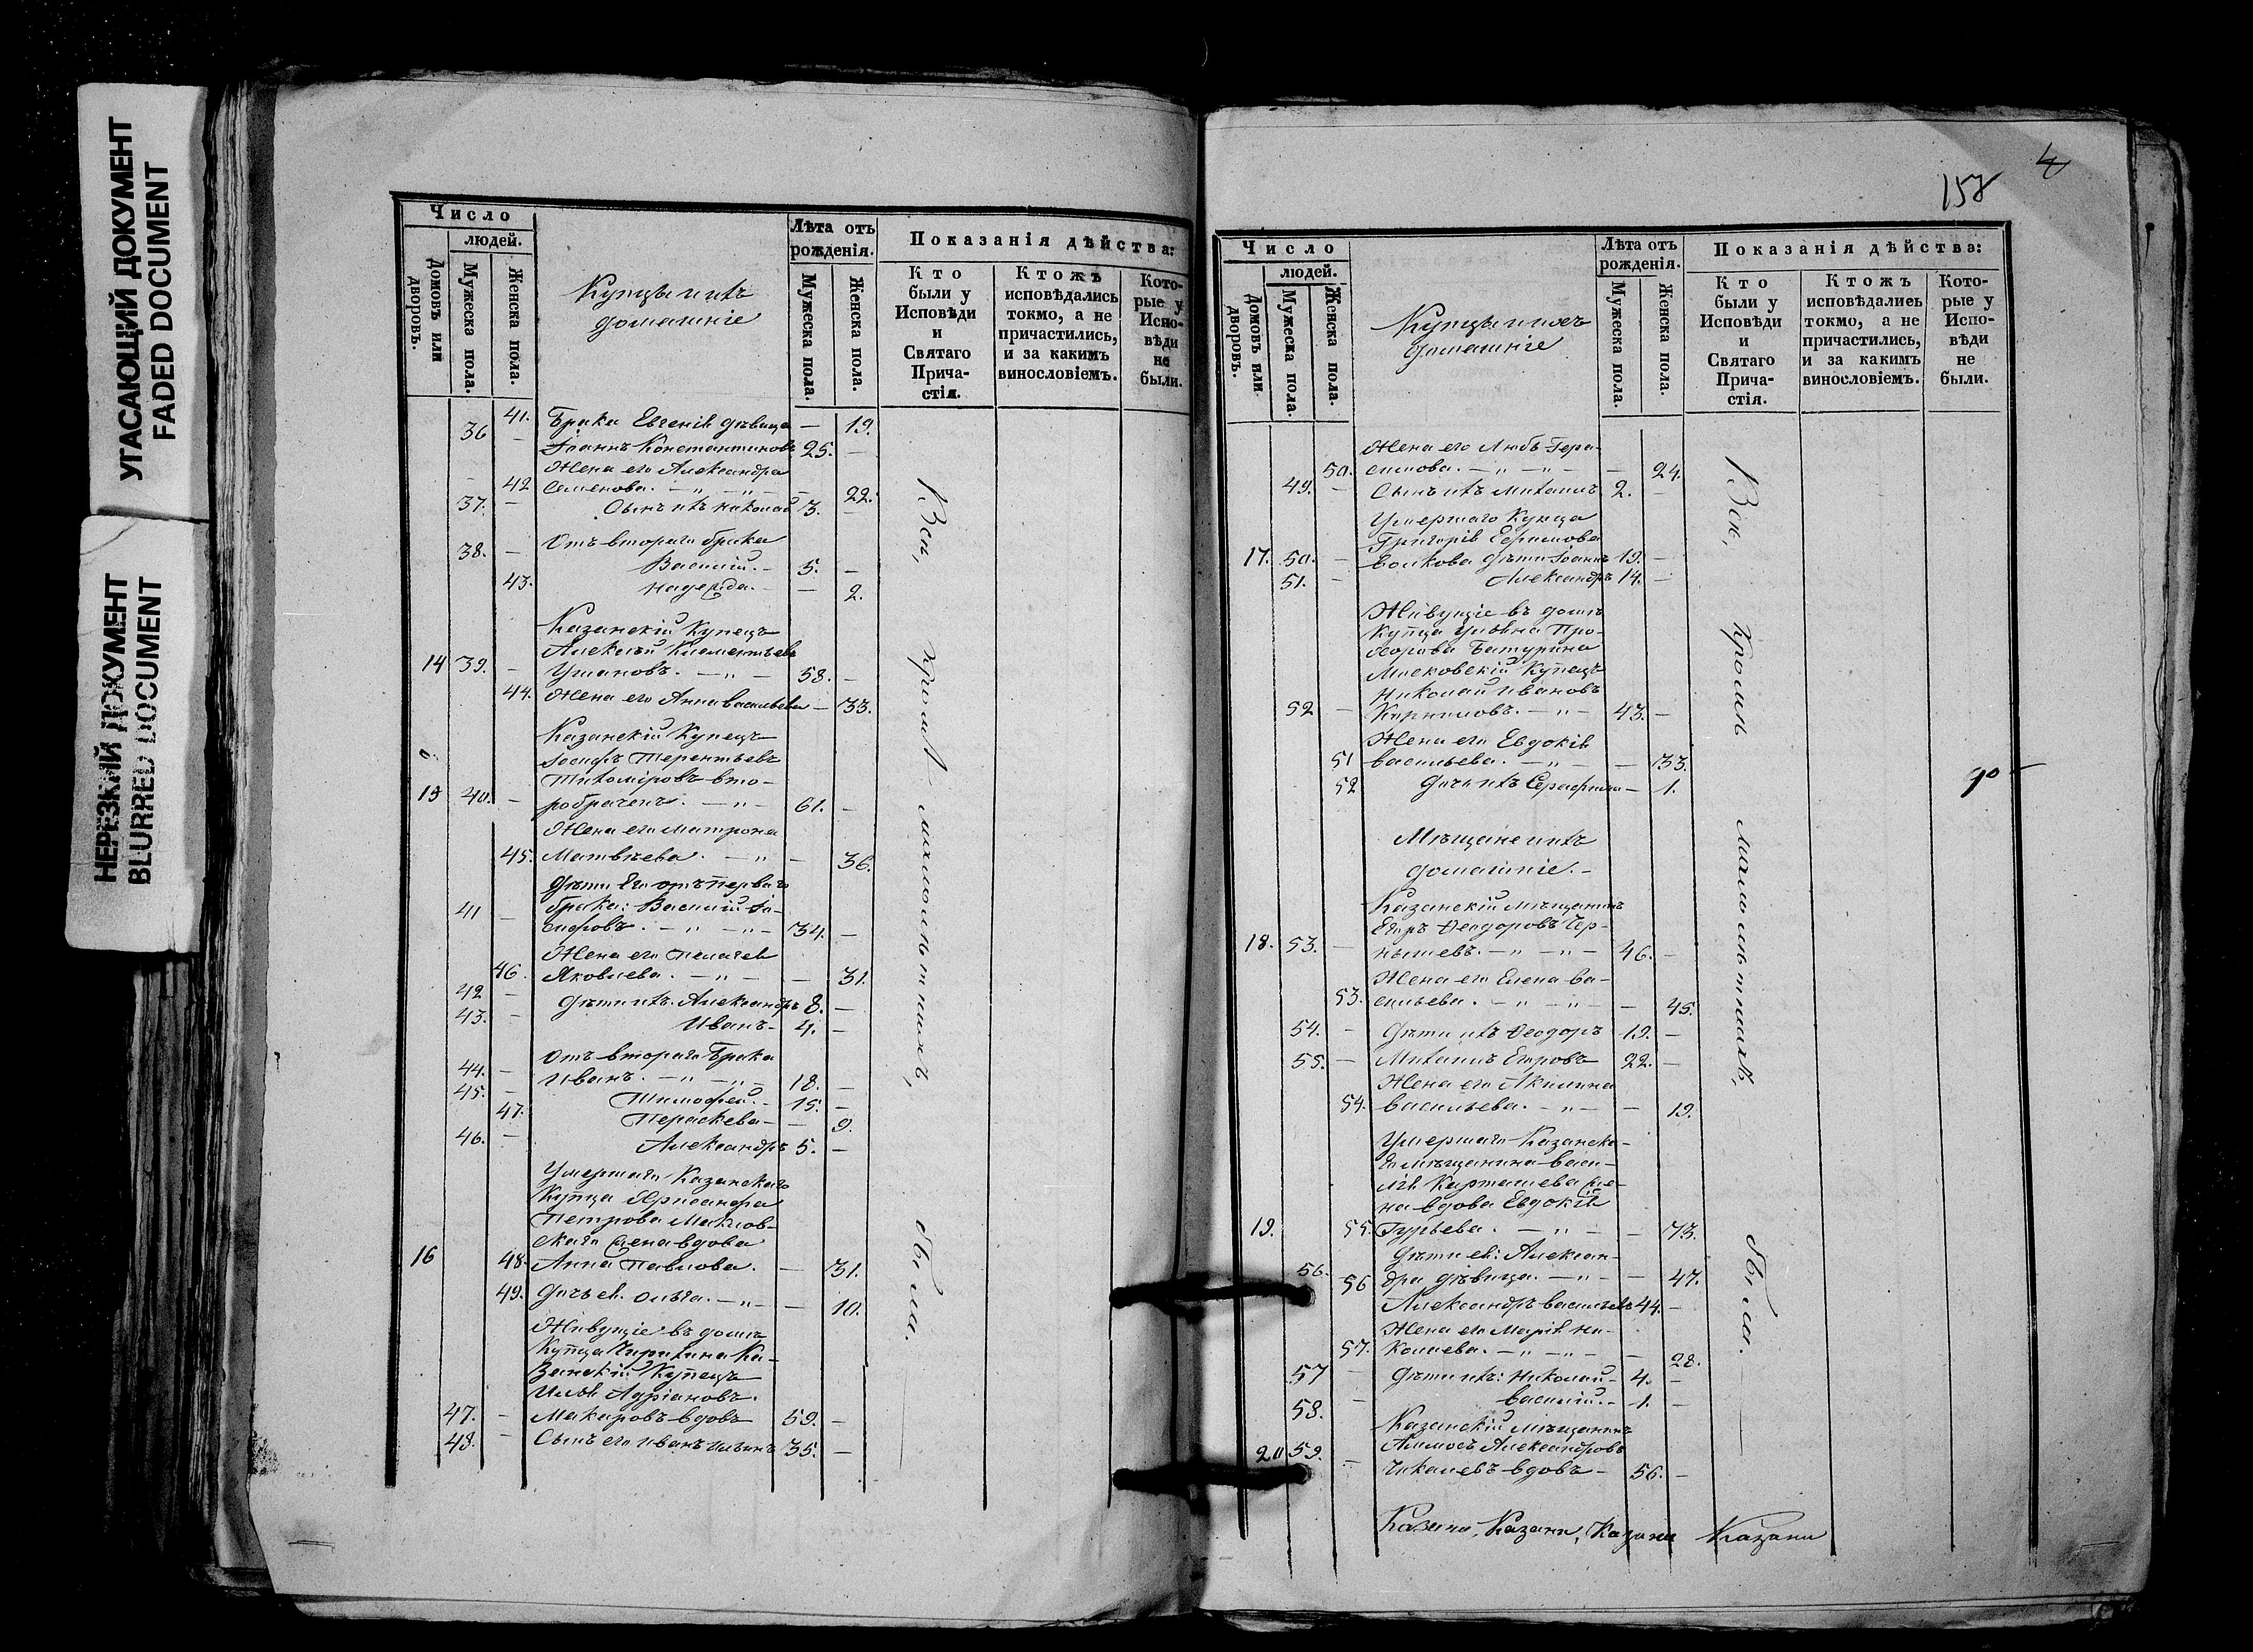 УГАСАЮЩИЙ ДОКУМЕНТ
FADED DOCUMENT
НЕРЕЗКИЙ ДОКУМЕНТ
BLURRED DOCUMENT
Число
людей.
Домовъ или дворовъ.
Мужеска пола.
Женска пола.
Купцы и ихъ
домашніе
Лѣта отъ
рожденія.
Мужеска пола.
Женска пола.
Показанія дѣйства:
Кто
были у
Исповѣди
и
Святаго
Прича-
стія.
Ктожъ
исповѣдались
токмо, а не
причастились,
и за какимъ
винословіемъ.
Кото-
рые у
Испо-
вѣди
не
были.
41. Брака Евгенія дѣвица — 19.
36 — Іоаннъ Константиновъ 25. —
Жена его Александра
42 Семенова. — „ — „ — — 22.
37. — Сынъ ихъ Николай 3. —
Отъ втораго брака
38. — Василій. — 5. —
43. Надежда. — — 2.
Казанскій Купецъ
Алексѣй Климентьевъ
14 39. — Ушаковъ. — „ — 58. —
44. Жена его Анна Васильева — 33.
Казанскій Купецъ
Іосифъ Терентьевъ
Тихоміровъ вто-
15 40. — робраченъ. — „ — 61. —
Жена его Матрона
45. Матвѣева. — „ — — 36.
Дѣти Его отъ перваго
41 — брака: Василій Іо-
сифовъ. — „ — „ — 34. —
Жена его Пелагея
46. Яковлева. — „ — — 31.
42 — Дѣти ихъ. Александръ 8. —
43. — Иванъ — 4. —
Отъ втораго Брака
44. — Иванъ. — „ — „ — 18. —
45. — Тимофей. — 15. —
47. Параскева — — 9.
46. — Александръ 5. —
Умершаго Казанскаго
Купца Хрисанфа
Петрова
скаго жена вдова
16 48. Анна Павлова. — 31.
49. Дочь ея. Ольга. — „ — — 10.
Живущіе въ домѣ
Купца Ка-
занскій Купецъ
Илья Адріановъ
47. — Макаровъ вдовъ 59. —
48. — Сынъ его Иванъ Ильинъ 35. —
Всѣ, кромѣ малолѣтнихъ, были.
4
158
Число
людей.
Домовъ или дворовъ.
Мужеска пола.
Женска пола.
Купцы и ихъ
домашніе
Лѣта отъ
рожденія.
Мужеска пола.
Женска пола.
Показанія дѣйства:
Кто
были у
Исповѣди
и
Святаго
Прича-
стія.
Ктожъ
исповѣдались
токмо, а не
причастились,
и за какимъ
винословіемъ.
Кото-
рые у
Испо-
вѣди
не
были.
Жена его Любъ Гера-
50. симова. — „ — „ — — 24.
49. — Сынъ ихъ Михаилъ 2. —
Умершаго Купца
Григорія Ефимова
17. 50. — Волкова дѣти Іоаннъ 19. —
51. — Александръ 14. —
Живущіе въ домѣ
Купца Ульяна Про-
хорова Батурина
Московскій Купецъ
Николай Ивановъ
52 — Корниловъ. — „ — 43. —
Жена его Евдокія
51 Васильева. — „ — — 33.
52 Дочь ихъ Серафима — 1.
Мѣщане и ихъ
домашніе. —
Казанскій мѣщанинъ
Егоръ Ѳеодоровъ Чер-
18. 53. — нышевъ. — „ — „ — 46. —
Жена его Елена Ва-
53. сильева. — „ — „ — — 45.
54. — Дѣти ихъ Ѳеодоръ 19. —
55. — Михаилъ Егоровъ 22. —
Жена его Акилина
54. Васильева. — „ — — 19.
Умершаго Казанска-
го мѣщанина Васи-
лія Карташева же-
на вдова Евдокія
19. 55. Гурьева. — „ — — 73.
Дѣти ея: Алексан-
56 дра дѣвица. — „ — — 47.
56. Александръ Васильевъ 44. —
Жена его Марія Ни-
57. колаева. — „ — „ — — 28.
57 — Дѣти ихъ: Николай — 4. —
58. — Василій. — 1. —
Казанскій мѣщанинъ
20 59. Александровъ
— вдовъ — 56. —
Всѣ, кромѣ малолѣтнихъ, были.
90 —
Казани, Казани, Казани Казани